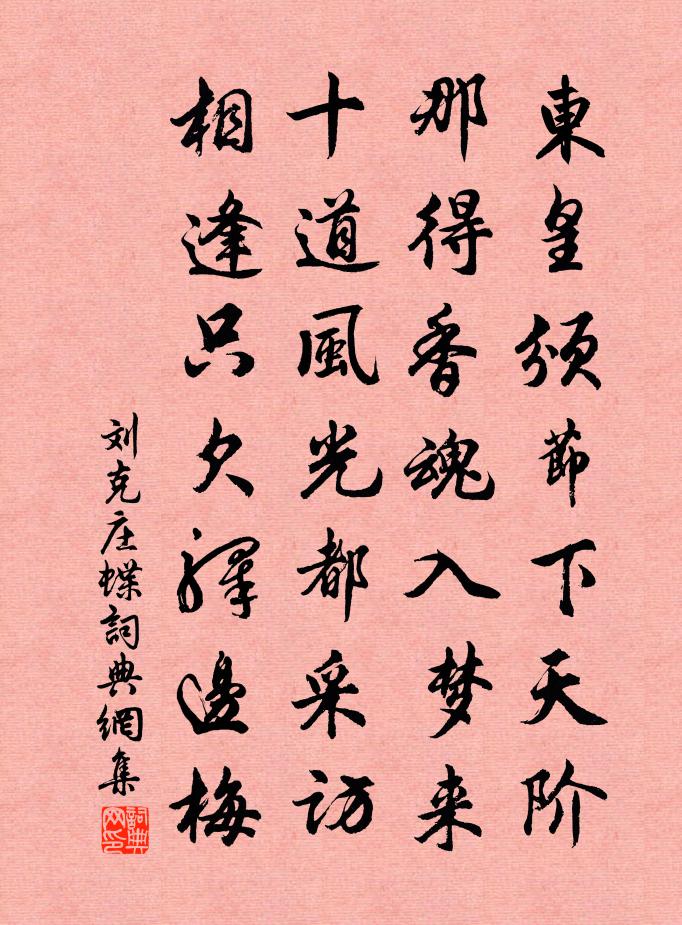 東皇颁節下天阶
那得香魂入梦来
十道風光都采访
相逢只欠驿邊梅
刘克庄蝶詞典網集
詞典网印